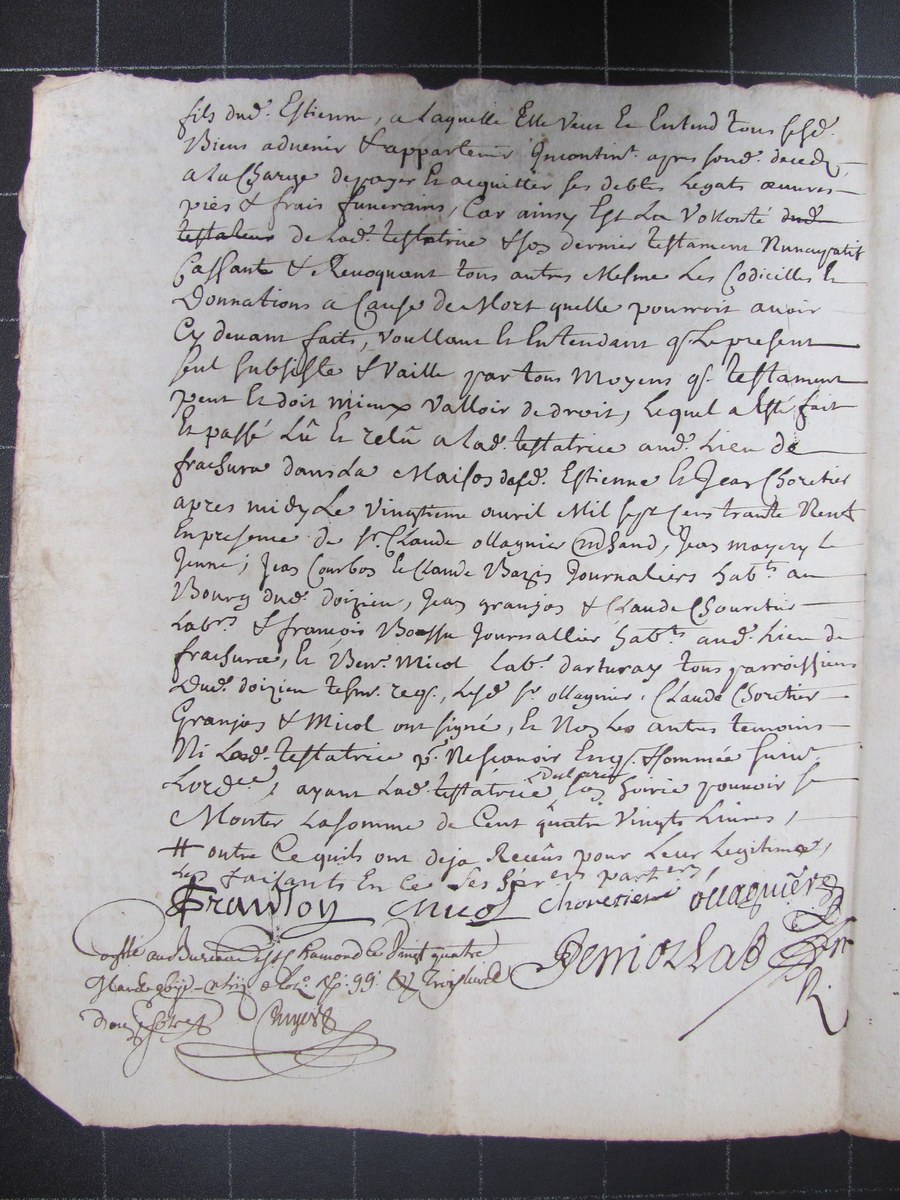 fils dud. Estienne, a Laquelle Elle Veut Et Entend tous sesd.
Biens advenir & appartenir Incontint. apres sond. deceds
a la Charge depayer Et acquitter ses debtes Legats œuvres
pies & frais funerains, Car ainsy Est La Vollonté dud.
testateur de Lad. testatrice & son dernier testament Nuncupatif
Cassante & Revoquant tous autres Mesme Les Codicilles Et
Donnations a Cause de Mort quelle pourroit avoir
Cy devant faits, voullant Et Entendant q. Le present
seul subsiste & Vaille par tous Moyens q. testament
peut Et doit mieux Valloir de droit, Lequel a Esté fait
Et passé Lû Et relû a Lad. testatrice aud. Lieu de
frachura dans La Maison desd. Estienne Et Jean Choretier
apres midy Le Vingtieme avril Mil sept cens trante
En presence de sr. Claude ollagnier, Jean mayery le
Jeune, Jean Courbon Et Claude Journaliers habts. au
Bourg dud. doizieu, Jean granjon & Claude Chouretier
Labrs. & françois Bossu Journallier habts. aud. Lieu de
frachura, Et Micol Lab. darturay tous parroissiens
Dud. doizieu req., Lesd. sr. ollagnier, Claude Choretier
Granjon & Micol ont signé, Et Non Les autres temoins
Ni Lad. testatrice pr. Ne scavoir Enq. & sommée suivt.
Lordce, ayant Lad. testatrice declaré son hoirie pouvoir se
Monter La somme de Cent quatre Vingts Livres,
# outre Ce quils ont deja Receus pour Leur Legitimes,
Les faisants En ce ses hers. partrs,
Granjon Micol choretier ollagnier
au Bureau de St Chamond le Vingt quatre
99
douze sols
R.